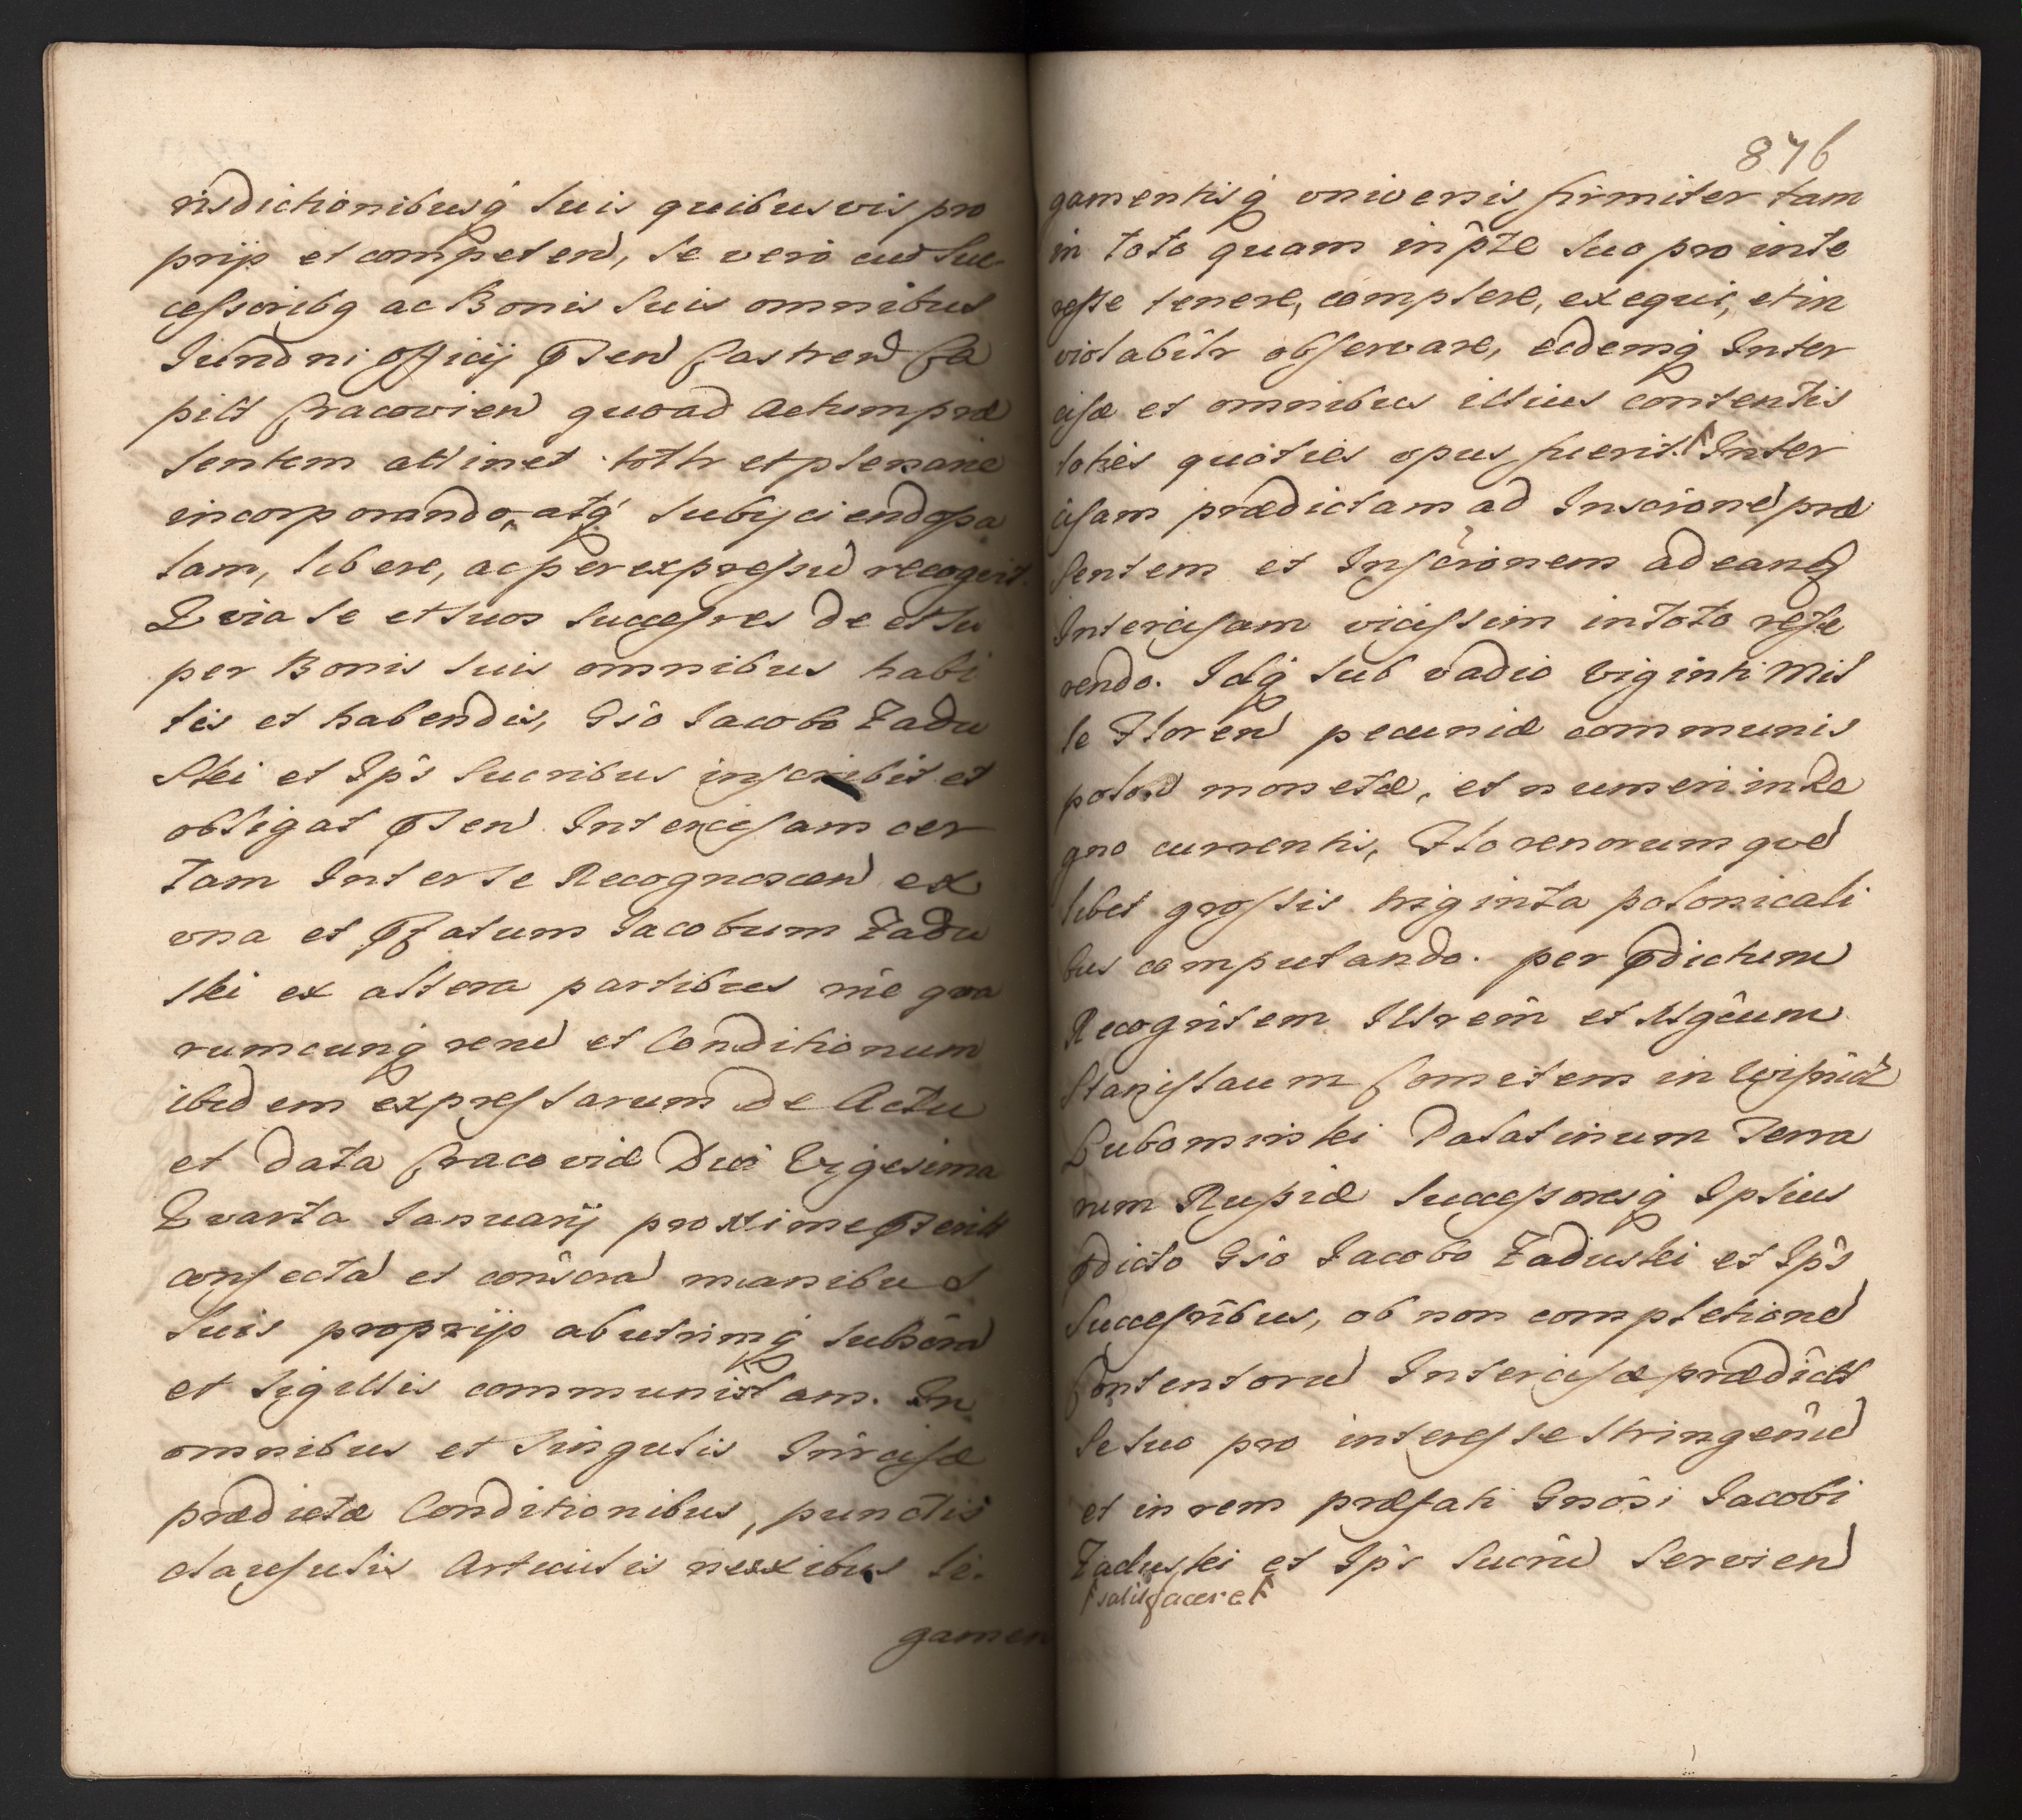 risdictionibusq suis quibusvis pro
prijs et competen, se vero cum Suc
cessoribq ac Bonis suis omnibus
Iurisdni officij Pnten Castren Ca
pitt Cracovien quoad Actum præ
sentem attinet totlr et plenarie
incorporando, atq subijciendo pa
lam, libere, ac per expressum recogvit.
Quia se et suos Succesres de et su
per Bonis suis omnibus habi
tis et habendis, Gso Iacobo Zadu
ski et Ips Sucribus inscribit et
obligat Pnten Intercisam cer
tam Inter se Recognoscen ex
vna et Pfatum Iacobum Zadu
ski ex altera partibus rne qua
rumcunq rerum et Conditionum
ibidem expressarum De Actu
et data Cracoviæ Die Vigesima
Quarta Ianuarij proxime Pterit
confecta et conscra manibus
suis proprijs ab utrinq subscra
et sigillis communitam. In
omnibus et singulis Intrcisæ
prædictæ Conditionibus, punctis
clausulis Articulis nexibus li-
gamen
876
gamentisq vniversis firmiter tam
in toto quam in pte suo pro inte
resse tenere, complere, exequi, et in
violabilr observare, eidemq Inter
cisæ et omnibus illius contentis
toties quoties opus fuerit Inter
cisam prædictam ad Inscrione præ
sentem et Inscrionem ad eandem
Intercisam vicissim in toto refe
rendo. Idq sub vadio Viginti Mil
le Floren pecuniæ communis
polon monetæ, et numeri in Re
gno currentis, Florenorum quod
libet grossis triginta polonicali
bus computando. per Pdictum
Recogntem Illrem et Mgcum
Stanislaum Comitem in Wisnicz
Lubomirski Palatinum Terra
rum Russiæ Successoresq Ipsius
Pdicto Gso Iacobo Zaduski et Ips
Succesribus, ob non completione
Contentoru Intercisæ prædict
Se suo pro interesse stringenu
et in rem præfati Gnosi Iacobi
Zaduski et Ips Sucru Servien
satisfacere